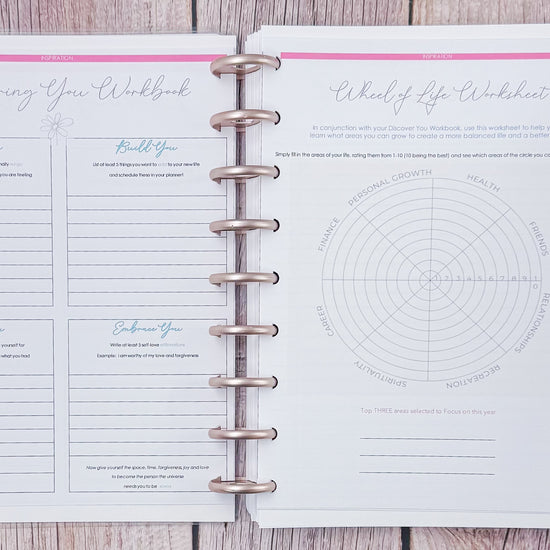 INSPIRATION
ring You Workbook
Build You
List at least 3 things you want to add to your new life
and schedule these in your planner!
you are feeling
Embrace You
Write at least 3 self-love affirmations
Example: I am worthy of my love and forgiveness
yourself for
what you had
Now give yourself the space, time, forgiveness, joy and love
to become the person the universe
needs you to be
INSPIRATION
Wheel of Life Worksheet
In conjunction with your Discover You Workbook, use this worksheet to help y
learn what areas you can grow to create a more balanced life and a better
Simply fill in the areas of your life, rating them from 1-10 (10 being the best) and see which areas of the circle you ca
PERSONAL GROWTH
HEALTH
FINANCE
FRIENDS
1 2 3 4 5 6 7 8 9 10
CAREER
RELATIONSHIPS
SPIRITUALITY
RECREATION
Top THREE areas selected to Focus on this year